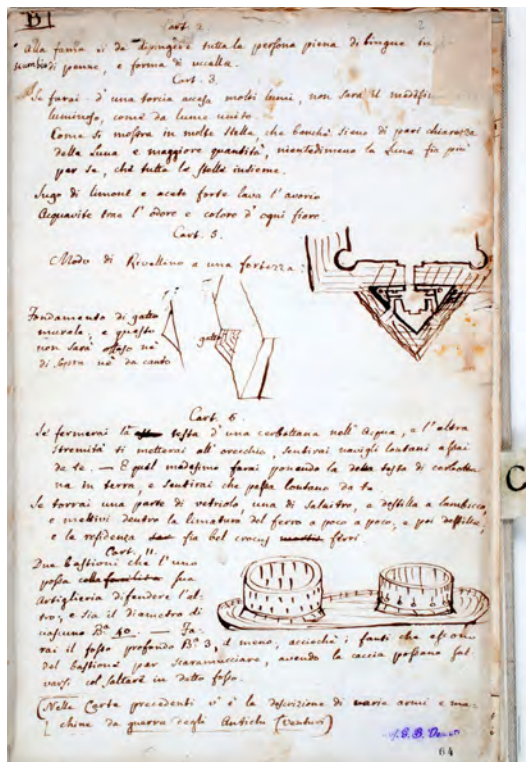 B
Cart. 2.
2
Alla fama si de dipingere tutta la persona piena di lingue in
scambio di penne, e forma di uccello.
Cart. 3.
Se farai d'una torcia accesa molti lumi, non sarà il medesimo
luminoso, come da lume unito.
Come si mostra in molte stelle, che benchè sieno di pari chiarezza
della Luna e maggiore quantità, nientedimeno la Luna fia più
per se, che tutte le stelle insieme.
Sugo di limone e aceto forte lava l'avorio
Acquavite trae l'odore e colore d'ogni fiore.
Cart. 5.
Modo di Rivellino a una fortezza:
Fondamento di gatto
murato, e questo
non sarà offeso nè
di sopra nè da canto
gatto
Cart. 6.
Se fermerai la testa d'una cerbottana nell'acqua, e l'altra
stremità ti metterai all'orecchio, sentirai navigli lontani assai
da te. — E quel medesimo farai ponendo la detta testa di cerbotta
na in terra, e sentirai chi passa lontano da te.
Se torrai una parte di vetriolo, una di salnitro, e destilla a lambicco,
e mettivi dentro la limatura del ferro a poco a poco, e poi destilla,
e la residenza fia bel crocus ferri.
Cart. 11.
Due bastioni che l'uno
possa colla sua
Artiglieria difendere l'al
tro, e sia il diametro di
ciascuno B.ª 40. — Fa-
rai il fosso profondo B.ª 3, o meno, acciochè i fanti che escono
del bastione per scaramucciare, avendo la caccia possano sal
varsi col saltare in detto fosso.
(Nelle Carte precedenti v'è la descrizione di varie armi e ma
chine da guerra degli Antichi (Venturi)
G. B.
64
C